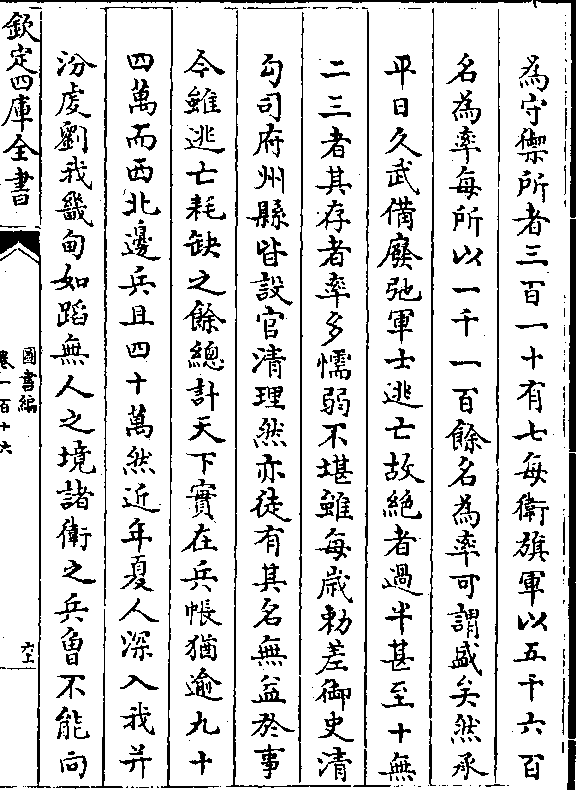 為守禦所者三百一十有七每衛旗軍以五千六百
名為率每所以一千一百餘名為率可謂盛矣然承
平日久武備廢弛軍士逃亡故絶者過半甚至十無
二三者其存者率多懦弱不堪雖每歲勅差御史清
勾司府州縣皆設官清理然亦徒有其名無益於事
今雖逃亡耗缺之餘總計天下實在兵帳猶逾九十
四萬而西北邊兵且四十萬然近年夏人深入我并
汾虔劉我畿甸如蹈無人之境諸衛之兵曾不能向
欽定四庫全書
圖書編
卷一百十六
六上